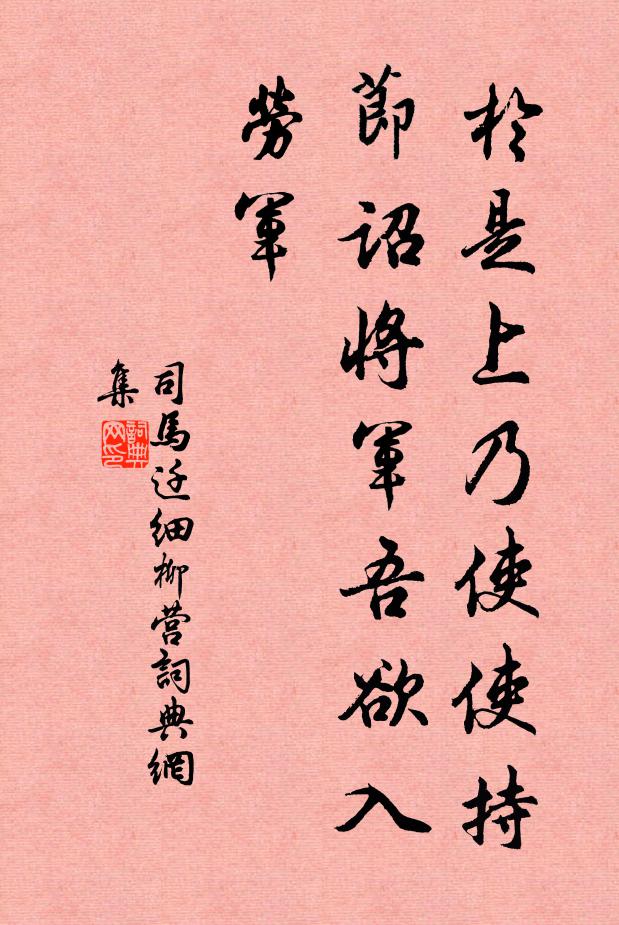 於是上乃使使持
節詔將軍吾欲入
勞軍
司馬迁细柳营詞典網
集
詞典
网印